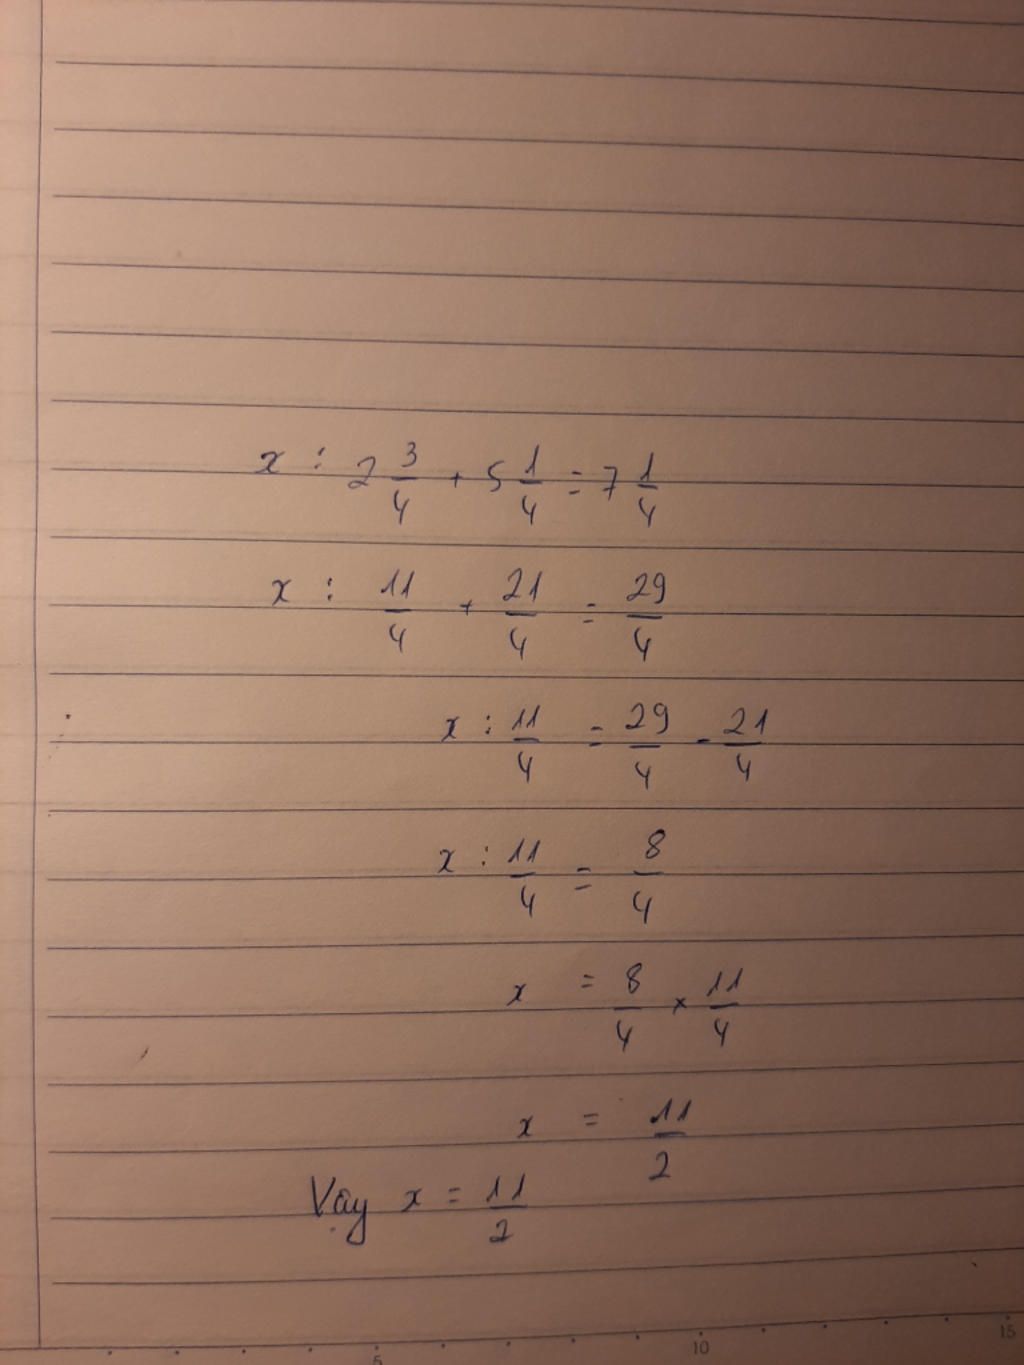 x : 2 3/4 + 5 1/4 = 7 1/4
x : 11/4 + 21/4 = 29/4
x : 11/4 = 29/4 - 21/4
x : 11/4 = 8/4
x = 8/4 × 11/4
x = 11/2
Vậy x = 11/2
5 10 15